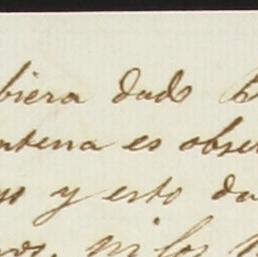 biera dado
ntena es obser
yo y esto da
ni los